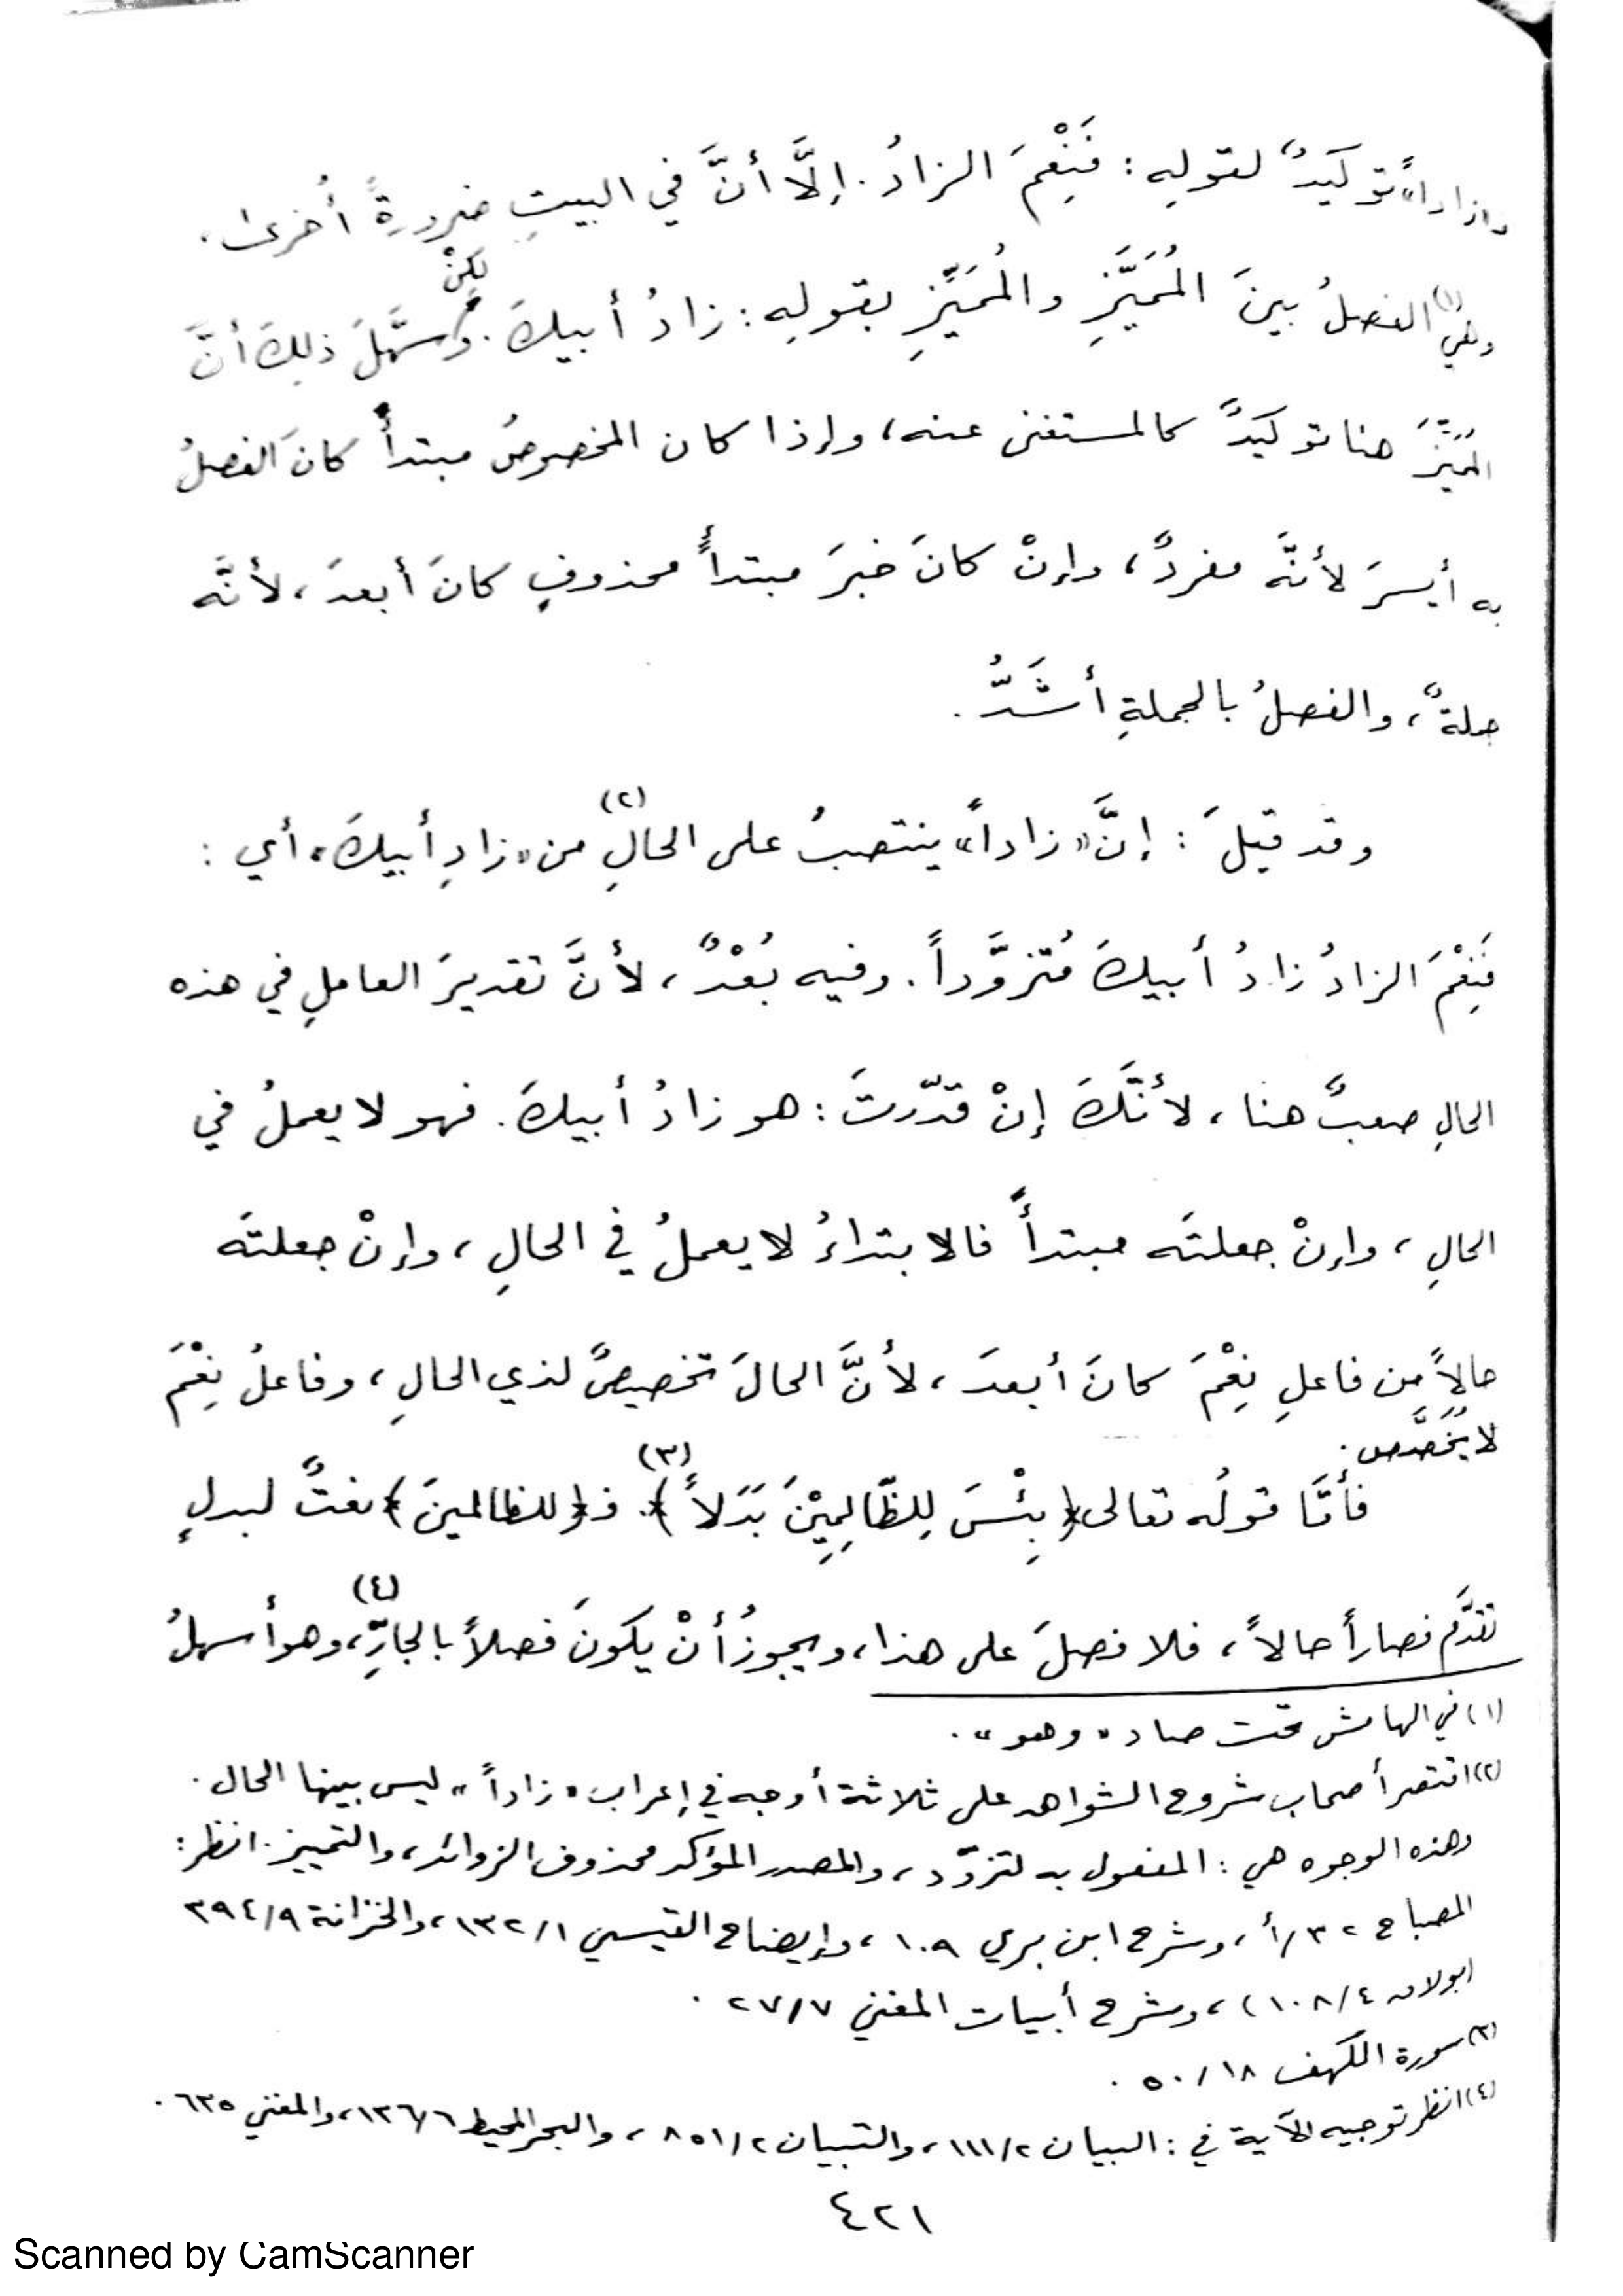 و«زاداً» توكيدٌ لقولِهِ: فَنِعْمَ الزادُ. إلَّا أنَّ في البيتِ ضرورةً أُخرى،
وهي(١) الفصلُ بينَ المُمَيَّزِ والمُمَيِّزِ بقولِهِ: زادُ أبيكَ. وسَهَّلَ ذلِكَ أنَّ
لكِنْ
المُمَيِّزَ هنا توكيدٌ كالمستغنى عنه، وإذا كان المخصوصُ مبتدأً كانَ الفصلُ
به أيسرَ لأنَّه مفردٌ، وإنْ كانَ خبرَ مبتدأً محذوفٍ كانَ أبعدَ، لأنَّه
جملةٌ، والفصلُ بالجملةِ أشَدُّ.
وقد قيلَ: إنَّ «زاداً» ينتصبُ على الحالِ(٢) من «زادِ أبيكَ» أي:
فَنِعْمَ الزادُ زادُ أبيكَ مُتَزوَّداً. وفيه بُعْدٌ، لأنَّ تقديرَ العاملِ في هذه
الحالِ صعبٌ هنا، لأنَّكَ إنْ قدّرتَ: هو زادُ أبيكَ. فهو لا يعملُ في
الحالِ، وإنْ جعلتَه مبتدأً فالابتداءُ لا يعملُ في الحالِ، وإنْ جعلتَه
حالاً من فاعلِ نِعْمَ كانَ أبعدَ، لأنَّ الحالَ تخصيصٌ لذي الحالِ، وفاعلُ نِعْمَ
لا يُخَصَّص.
فأمَّا قولُه تعالى ﴿بِئْسَ لِلظَّالِمِيْنَ بَدَلاً﴾(٣). فـ﴿للظالمينَ﴾ نعتٌ لبدلٍ
تقدَّم فصار حالاً، فلا فصلَ على هذا، ويجوزُ أنْ يكونَ فصلاً بالجارِّ(٤)، وهو أسهلُ
(١) في الهامش تحت صاد «وهو».
(٢) اقتصر أصحاب شروح الشواهد على ثلاثة أوجه في إعراب «زاداً» ليس بينها الحال.
وهذه الوجوه هي: المفعول به لتزوّد، والمصدر المؤكد محذوف الزوائد، والتمييز. انظر:
المصباح ٣٢/أ، وشرح ابن بري ١٠٩، وإيضاح القيسي ١٣٢/١، والخزانة ٣٩٤/٩
(بولاق ١٠٨/٤)، وشرح أبيات المغني ٢٧/٧.
(٣) سورة الكهف ٥٠/١٨.
(٤) انظر توجيه الآية في: البيان ١١١/٢، والتبيان ٨٥١/٢، والبحر المحيط ١٣٦/٦، والمغني ٦٣٥.
٤٢١
Scanned by CamScanner